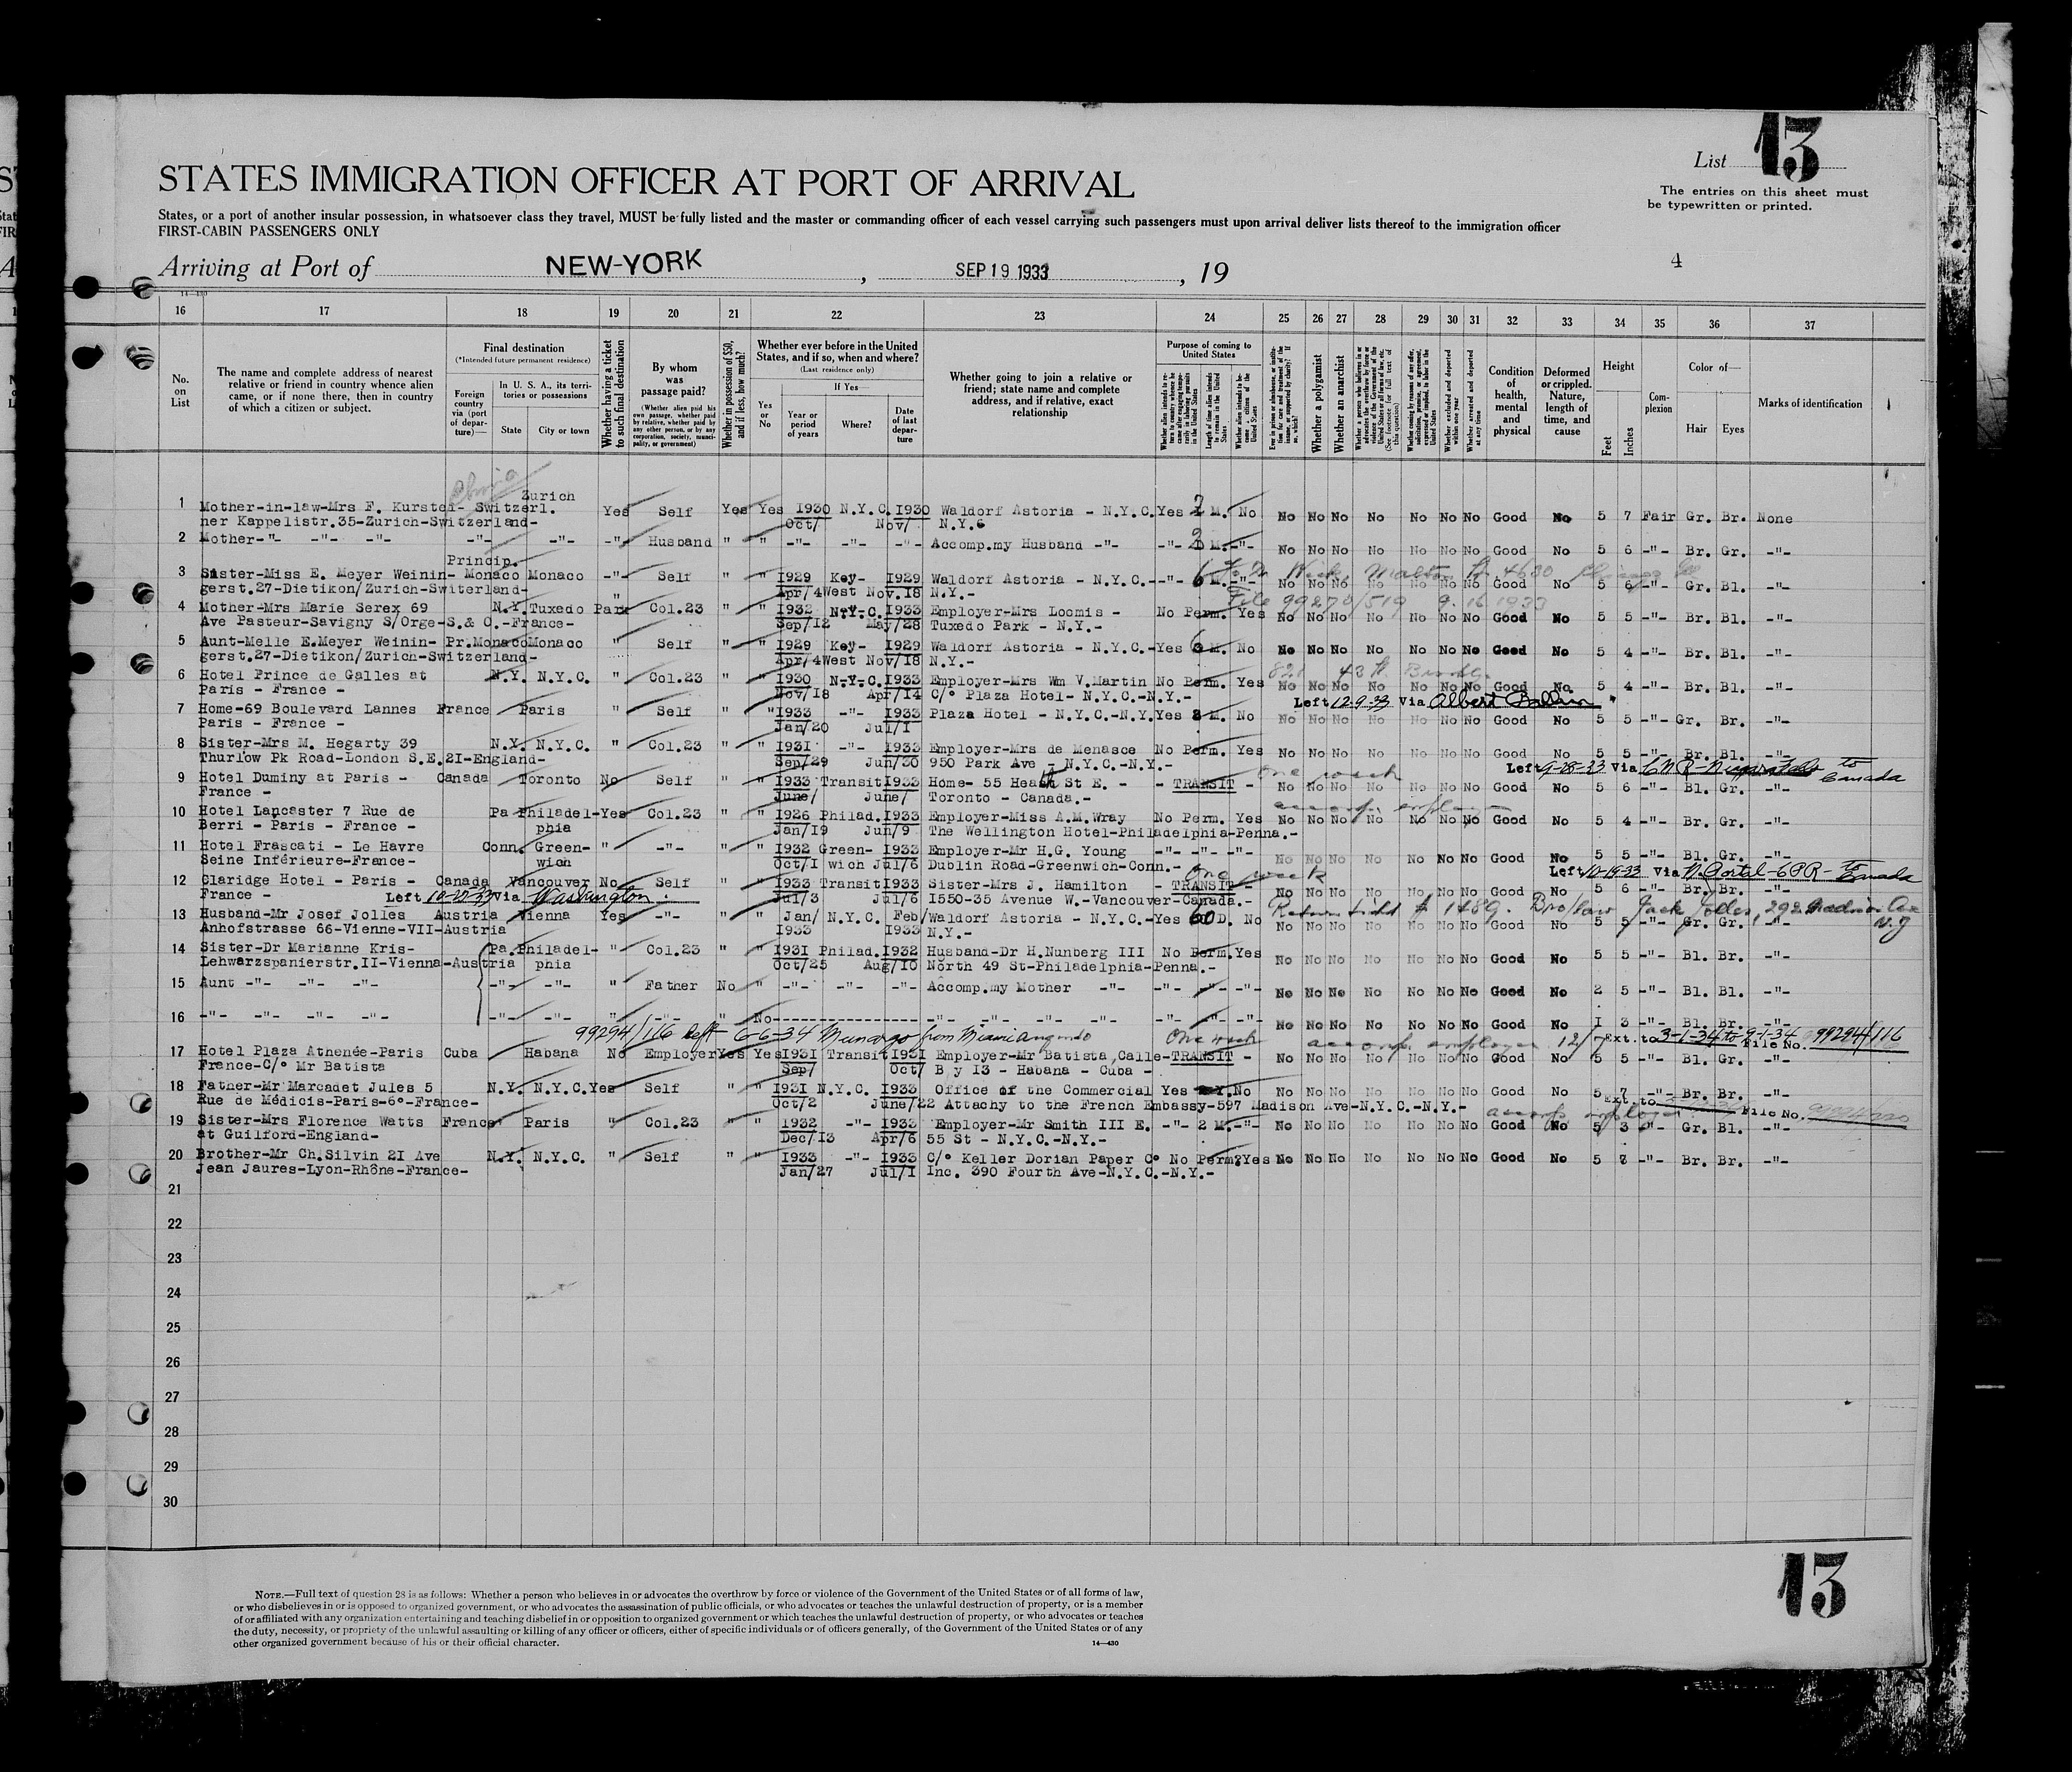 List 13
STATES IMMIGRATION OFFICER AT PORT OF ARRIVAL
The entries on this sheet must
be typewritten or printed.
States, or a port of another insular possession, in whatsoever class they travel, MUST be fully listed and the master or commanding officer of each vessel carrying such passengers must upon arrival deliver lists thereof to the immigration officer
FIRST-CABIN PASSENGERS ONLY
Arriving at Port of NEW-YORK, SEP 19 1933, 19
4
14-430
16 17 18 19 20 21 22 23 24 25 26 27 28 29 30 31 32 33 34 35 36 37
No. on List
The name and complete address of nearest relative or friend in country whence alien came, or if none there, then in country of which a citizen or subject.
Final destination
(*Intended future permanent residence)
Foreign country via (port of departure)—
In U. S. A., its territories or possessions
State City or town
Whether having a ticket to such final destination
By whom was passage paid?
(Whether alien paid his own passage, whether paid by relative, whether paid by any other person, or by any corporation, society, municipality, or government)
Whether in possession of $50, and if less, how much?
Whether ever before in the United States, and if so, when and where?
(Last residence only)
Yes or No
If Yes—
Year or period of years
Where?
Date of last departure
Whether going to join a relative or friend; state name and complete address, and if relative, exact relationship
Purpose of coming to United States
Whether a polygamist
Whether an anarchist
Condition of health, mental and physical
Deformed or crippled. Nature, length of time, and cause
Height
Feet Inches
Complexion
Color of—
Hair Eyes
Marks of identification
Zurich
1 Mother-in-law-Mrs F. Kurstei- Switzerl. Yes Self Yes Yes I930 N.Y.C. I930 Waldorf Astoria - N.Y.C. Yes 2 M. No No No No No No No No Good No 5 7 Fair Gr. Br. None
ner Kappelistr.35-Zurich-Switzerland- Oct/ Nov/ N.Y.
2 Mother-"- -"- -"- -"- -"- -"- Husband " " -"- -"- -"- Accomp.my Husband -"- -"- 2 M. -"- No No No No No No No Good No 5 6 -"- Br. Gr. -"-
Princip.
3 Sister-Miss E. Meyer Weinin- Monaco Monaco -"- Self " " I929 Key- I929 Waldorf Astoria - N.Y.C.- -"- 6 M. -"- No No No No No No No Good No 5 6 -"- Gr. Bl. -"-
gerst.27-Dietikon/Zurich-Switerland- Apr/4 West Nov.I8 N.Y.-
File 99270/519 9.16.1933
4 Mother-Mrs Marie Serex 69 N.Y. Tuxedo Park " Col.23 " " I932 N.Y.C. I933 Employer-Mrs Loomis - No Perm. Yes No No No No No No No Good No 5 5 -"- Br. Bl. -"-
Ave Pasteur-Savigny S/Orge-S.& O.-France- Sep/I2 May/28 Tuxedo Park - N.Y.-
5 Aunt-Melle E.Meyer Weinin- Pr.Monaco Monaco " Self " " I929 Key- I929 Waldorf Astoria - N.Y.C.- Yes 6 M. No No No No No No No No Good No 5 4 -"- Br. Bl. -"-
gerst.27-Dietikon/Zurich-Switzerland- Apr/4 West Nov/I8 N.Y.-
6 Hotel Prince de Galles at N.Y. N.Y.C. " Col.23 " " I930 N.Y.C. I933 Employer-Mrs Wm V.Martin No Perm. Yes No No No No No No No Good No 5 4 -"- Br. Bl. -"-
Paris - France - Nov/I8 Apr/I4 C/° Plaza Hotel- N.Y.C.-N.Y.-
Left 12-9-33 Via Albert Ballin
7 Home-69 Boulevard Lannes France Paris " Self " " I933 -"- I933 Plaza Hotel - N.Y.C.-N.Y. Yes 2 M. No No No No No No No No Good No 5 5 -"- Gr. Br. -"-
Paris - France - Jan/20 Jul/I
8 Sister-Mrs M. Hegarty 39 N.Y. N.Y.C. " Col.23 " " I93I -"- I933 Employer-Mrs de Menasce No Perm. Yes No No No No No No No Good No 5 5 -"- Br. Bl. -"-
Thurlow Pk Road-London S.E.2I-England- Sep/29 Jun/30 950 Park Ave - N.Y.C.-N.Y.-
one week
Left 9-28-33 Via C N R - Niagara Falls to Canada
9 Hotel Duminy at Paris - Canada Toronto No Self " " I933 Transit I933 Home- 55 Heath St E. - - TRANSIT - No No No No No No No Good No 5 6 -"- Bl. Gr. -"-
France - June/ June/ Toronto - Canada.-
accomp. employer
10 Hotel Lancaster 7 Rue de Pa Philadel- Yes Col.23 " " I926 Philad. I933 Employer-Miss A.M.Wray No Perm. Yes No No No No No No No Good No 5 4 -"- Br. Gr. -"-
Berri - Paris - France - phia Jan/I9 Jun/9 The Wellington Hotel-Philadelphia-Penna.-
11 Hotel Frascati - Le Havre Conn. Green- " -"- " " I932 Green- I933 Employer-Mr H.G. Young -"- -"- -"- No No No No No No No Good No 5 5 -"- Bl. Gr. -"-
Seine Inférieure-France- wich Oct/I wich Jul/6 Dublin Road-Greenwich-Conn.-
one week
Left 10-19-33 Via N. Portal-CPR- to Canada
12 Claridge Hotel - Paris - Canada Vancouver No Self " " I933 Transit I933 Sister-Mrs J. Hamilton - TRANSIT - No No No No No No No Good No 5 6 -"- Br. Br. -"-
France - Jul/3 Jul/6 I550-35 Avenue W.-Vancouver-Canada.-
Left 10-27-33 Via Washington
Bro/law Jack Jolles, 292 Madison Ave N.Y
13 Husband-Mr Josef Jolles Austria Vienna Yes -"- " " Jan/ N.Y.C. Feb/ Waldorf Astoria - N.Y.C.- Yes 60 D. No No No No No No No No Good No 5 5 -"- Gr. Gr. -"-
Anhofstrasse 66-Vienne-VII-Austria I933 I933 N.Y.-
14 Sister-Dr Marianne Kris- Pa. Philadel- " Col.23 " " I93I Philad. I932 Husband-Dr H.Nunberg III No Perm. Yes No No No No No No No Good No 5 5 -"- Bl. Br. -"-
Lehwarzspanierstr.II-Vienna-Austria phia Oct/25 Aug/I0 North 49 St-Philadelphia-Penna.-
15 Aunt -"- -"- -"- -"- -"- " Father No " -"- -"- -"- Accomp.my Mother -"- -"- -"- -"- No No No No No No No Good No 2 5 -"- Bl. Bl. -"-
16 -"- -"- -"- -"- -"- -"- " -"- " No -"- -"- -"- -"- -"- -"- -"- No No No No No No No Good No I 3 -"- Bl. Br. -"-
99294/116 Left 6-6-34 Munargo from Miami
One week accomp. employer
Ext. to 3-1-34 to 9-1-34 File No. 99294/116
17 Hotel Plaza Athenée-Paris Cuba Habana No Employer Yes Yes I93I Transit I93I Employer-Mr Batista,Calle- TRANSIT - No No No No No No No Good No 5 5 -"- Bl. Gr. -"-
France-C/° Mr Batista Sep/ Oct/ B y I3 - Habana - Cuba -
18 Father-Mr Marcadet Jules 5 N.Y. N.Y.C. Yes Self " " I93I N.Y.C. I933 Office of the Commercial Yes Y. No No No No No No No No Good No 5 7 -"- Br. Br. -"-
Rue de Médicis-Paris-6°-France- Oct/2 June/22 Attachy to the French Embassy-597 Madison Ave-N.Y.C.-N.Y.-
accomp employer
Ext. to File No.
19 Sister-Mrs Florence Watts France Paris " Col.23 " " I932 -"- I933 Employer-Mr Smith III E. -"- 2 M. -"- No No No No No No No Good No 5 3 -"- Gr. Bl. -"-
at Guilford-England- Dec/I3 Apr/6 55 St - N.Y.C.-N.Y.-
20 Brother-Mr Ch.Silvin 2I Ave N.Y. N.Y.C. " Self " " I933 -"- I933 C/° Keller Dorian Paper C° No Perm. Yes No No No No No No No Good No 5 -"- Br. Br. -"-
Jean Jaures-Lyon-Rhône-France- Jan/27 Jul/I Inc. 390 Fourth Ave-N.Y.C.-N.Y.-
21
22
23
24
25
26
27
28
29
30
13
NOTE.—Full text of question 28 is as follows: Whether a person who believes in or advocates the overthrow by force or violence of the Government of the United States or of all forms of law,
or who disbelieves in or is opposed to organized government, or who advocates the assassination of public officials, or who advocates or teaches the unlawful destruction of property, or is a member
of or affiliated with any organization entertaining and teaching disbelief in or opposition to organized government or which teaches the unlawful destruction of property, or who advocates or teaches
the duty, necessity, or propriety of the unlawful assaulting or killing of any officer or officers, either of specific individuals or of officers generally, of the Government of the United States or of any
other organized government because of his or their official character.
14—430